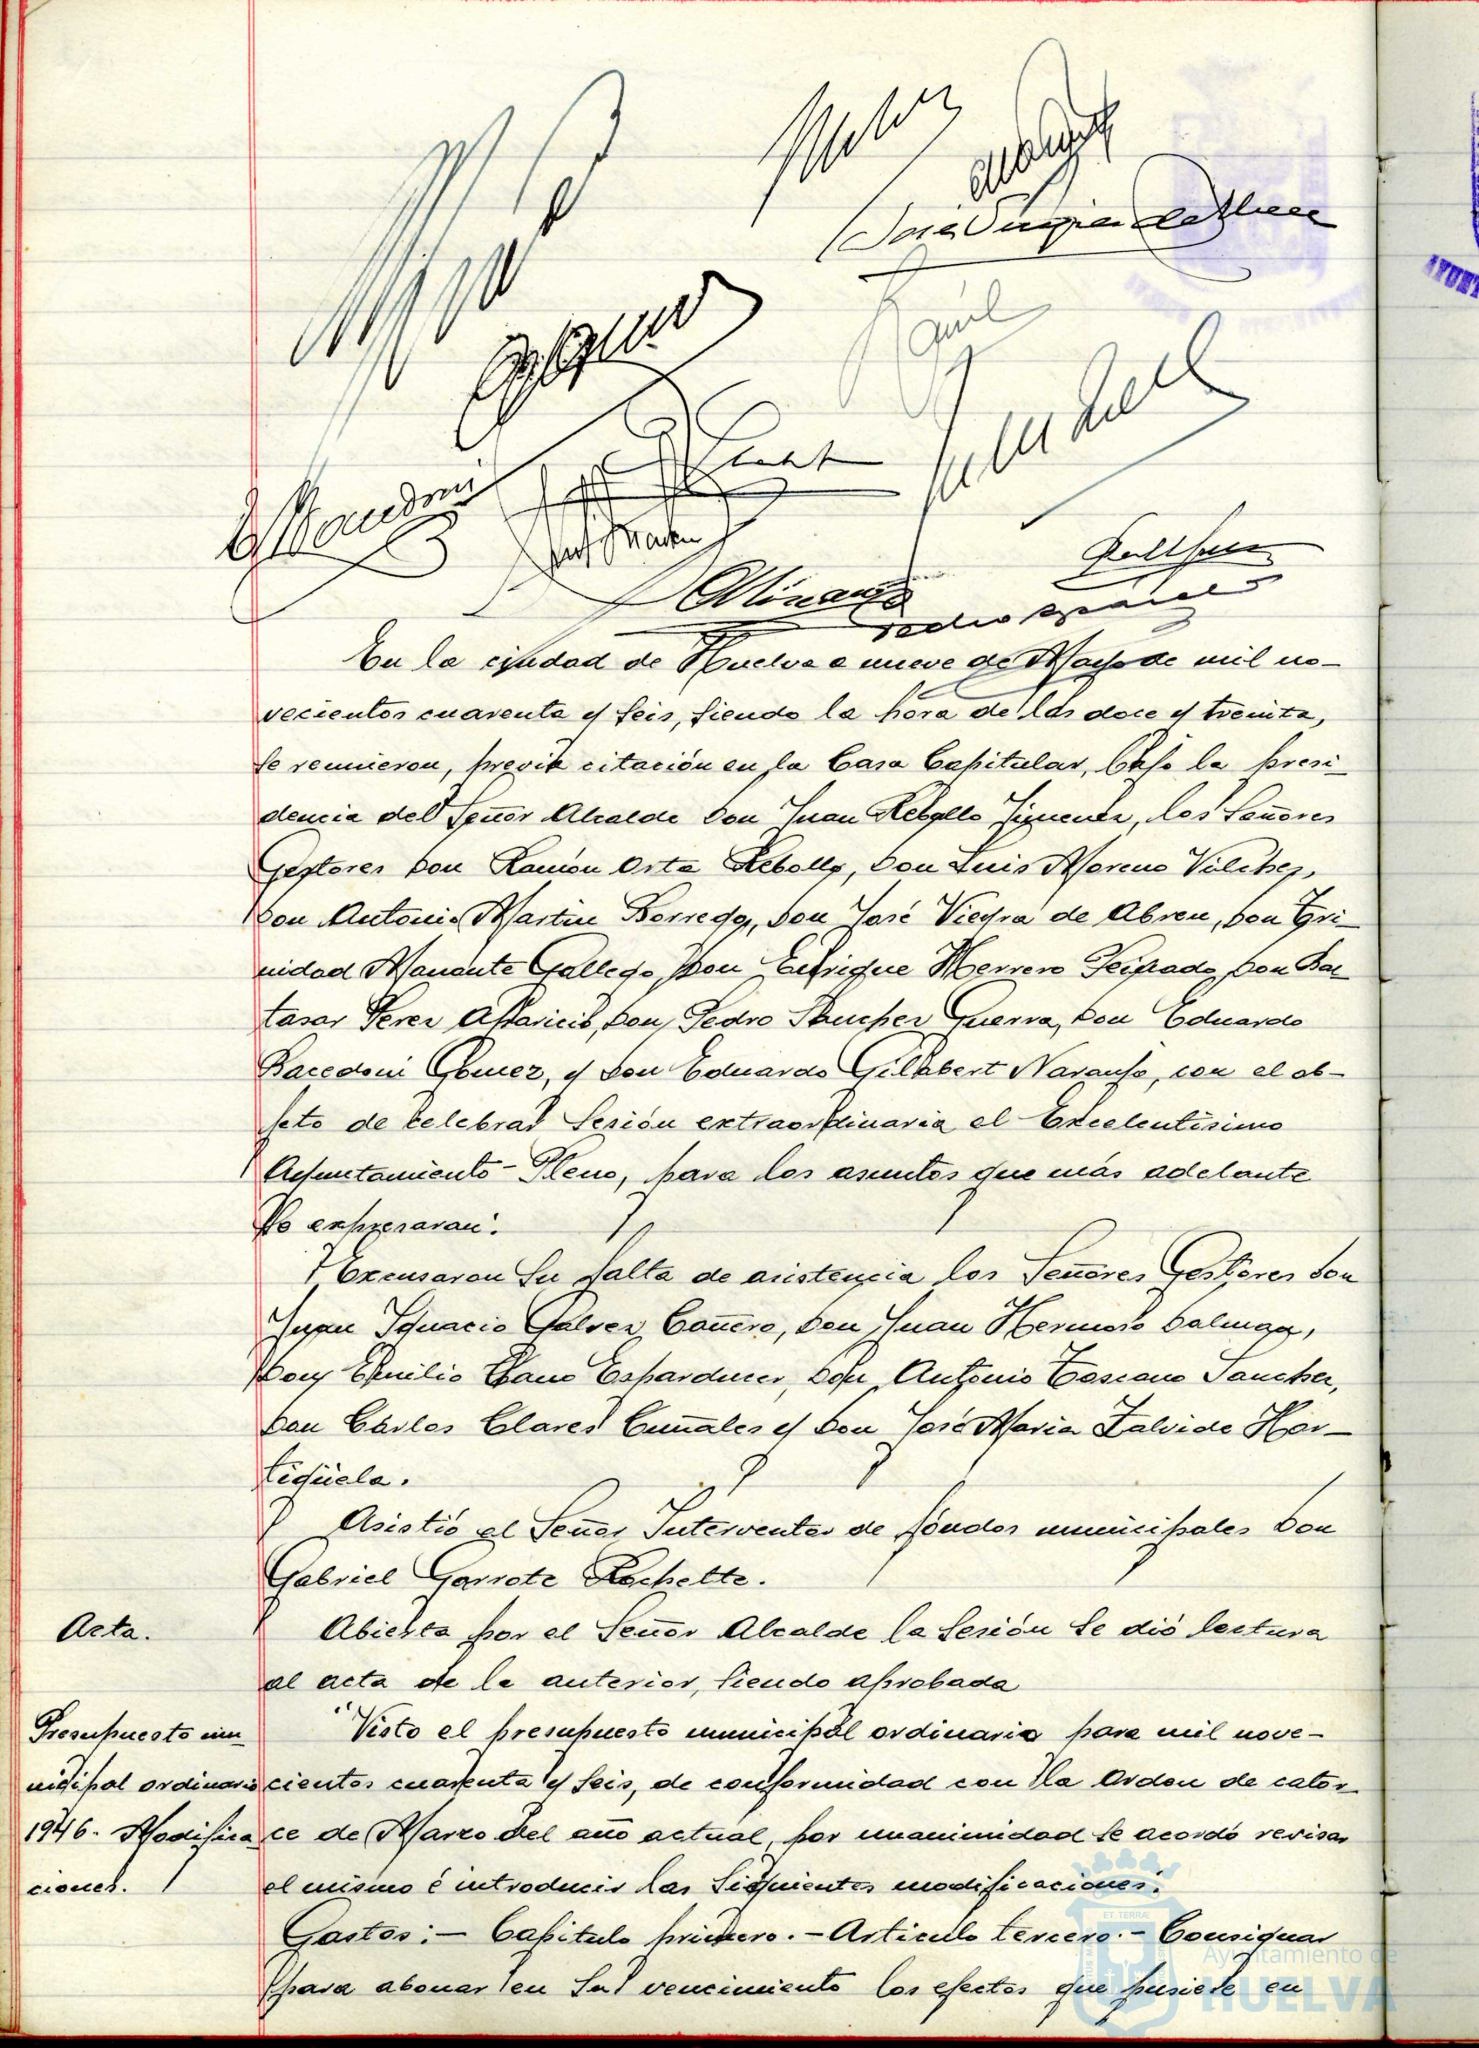 José Vieyra de Abreu
Pedro
En la ciudad de Huelva a nueve de Mayo de mil no-
vecientos cuarenta y seis, siendo la hora de las doce y treinta,
se reunieron, previa citación en la Casa Capitular, bajo la presi-
dencia del Señor Alcalde Don Juan Rebollo Jimenez, los Señores
Gestores Don Ramón Orta Rebollo, Don Luis Moreno Vilchez,
Don Antonio Martin Borrego, Don José Vieyra de Abreu, Don Tri-
nidad Manante Gallego, Don Enrique Herrero Don Bal-
tasar Perez Aparicio, Don Pedro Sanchez Guerra, Don Eduardo
Bacedoni Gomez, y Don Eduardo Gilabert Naranjo, con el ob-
jeto de celebrar Sesión extraordinaria el Excelentisimo
Ayuntamiento-Pleno, para los asuntos que más adelante
se expresaran.
Excusaron su falta de asistencia los Señores Gestores Don
Juan Ignacio Galvez Cañero, Don Juan Hermoso
Don Emilio Cano Don Antonio Toscano Sanchez,
Don Cárlos Clares y Don José Maria Zalvide Hor-
tigüela.
Asistió el Señor Interventor de fondos municipales Don
Gabriel Garrote Rochette.
Acta.
Abierta por el Señor Alcalde la Sesión se dió lectura
al acta de la anterior, siendo aprobada
Presupuesto mu-
nicipal ordinario
1946. Modifica
ciones.
Visto el presupuesto municipal ordinario para mil nove-
cientos cuarenta y seis, de conformidad con la Orden de cator-
ce de Marzo del año actual, por unanimidad se acordó revisar
el mismo é introducir las siguientes modificaciones.
Gastos:- Capitulo primero.- Articulo tercero.- Consignar
para abonar en su vencimiento los efectos que pusiese en
ET TERRÆ
Ayuntamiento de
HUELVA